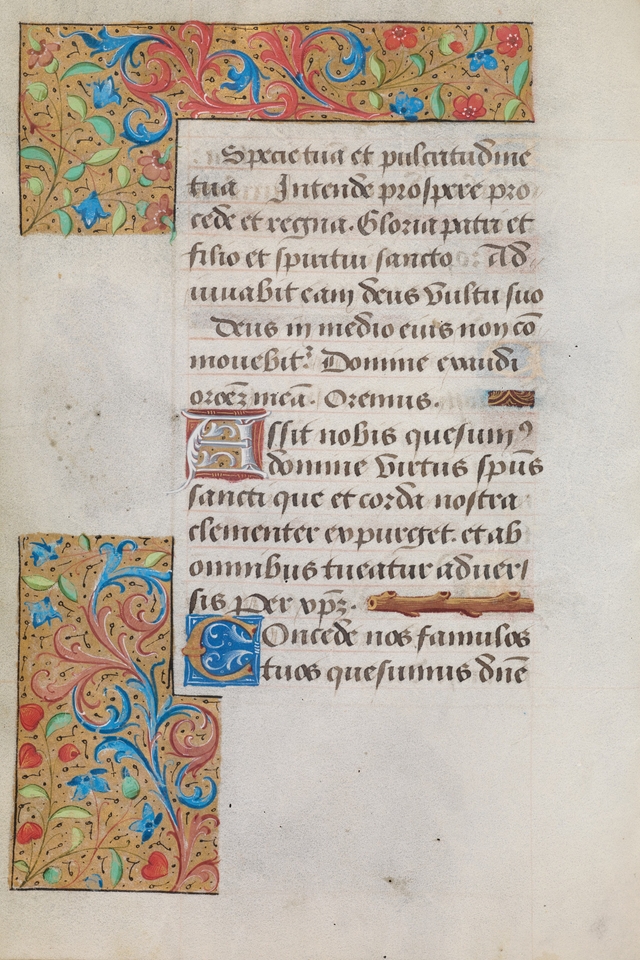 Specie tua et pulcritudine
tua Intende prospere pro
cede et regna. Gloria patri et
filio et spiritui sancto Ad
iuvabit eam deus vultu suo
Deus in medio eius non cō
movebit᷑ Domine exaudi
orōēz meā. Oremus.
Assit nobis quesumꝰ
domine virtus spūs
sancti que et corda nostra
clementer expurget. et ab
omnibus tueatur adver/
sis Per xpz̄.
Concede nos famulos
tuos quesumus dnē